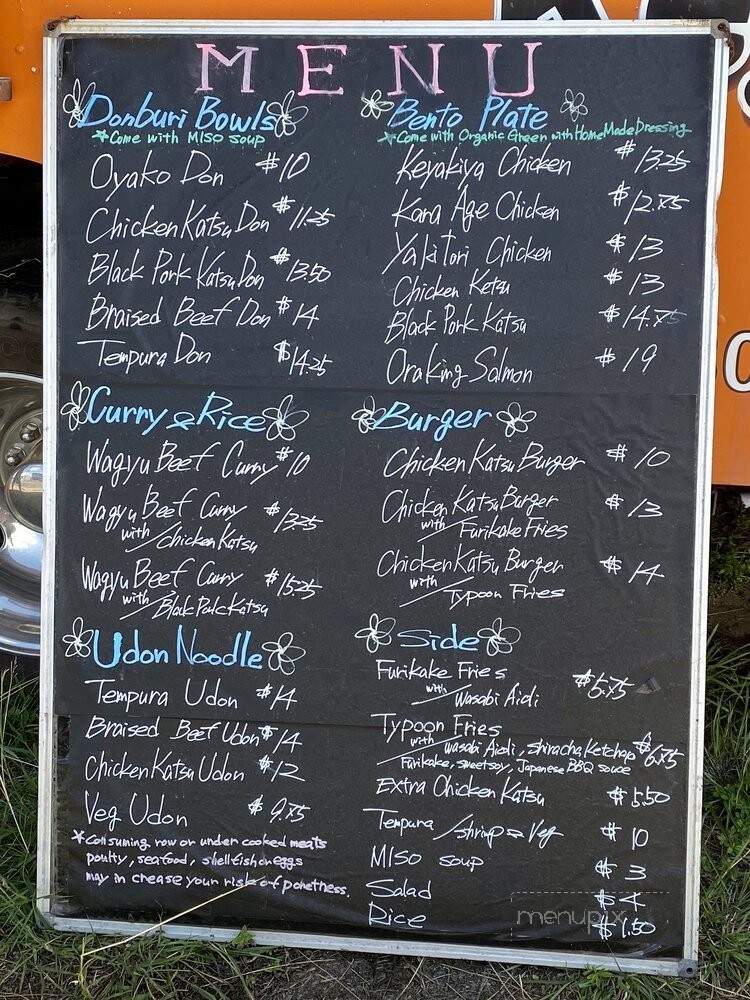 MENU
Donburi Bowls
*Come with MISO soup
Oyako Don $10
Chicken Katsu Don $11.25
Black Pork Katsu Don $13.50
Braised Beef Don $14
Tempura Don $14.25
Curry & Rice
Wagyu Beef Curry $10
Wagyu Beef Curry $13.25
with Chicken Katsu
Wagyu Beef Curry $15.25
with Black Polc Katsu
Udon Noodle
Tempura Udon $14
Braised Beef Udon $14
Chicken Katsu Udon $12
Veg Udon $9.75
*Consuming row or under cooked meats
poulty, seafood, shellfish or eggs
may in crease your risk of
Bento Plate
*Come with Organic Green with Home Made Dressing
Keyakiya Chicken $13.25
Kara Age Chicken $12.75
Yaki Tori Chicken $13
Chicken Ketsu $13
Black Pork Katsu $14.75
Oraking Salmon $19
Burger
Chicken Katsu Burger $10
Chicken Katsu Burger $13
with Furikake Fries
Chicken Katsu Burger $14
with Typoon Fries
Side
Furikake Fries $5.75
with Wasabi Aioli
Typoon Fries
with wasabi Aioli, shiracha Ketchap $6.75
Furikake, sweet soy, Japanese BBQ souce
Extra Chicken Katsu $5.50
Tempura /shrimp Veg $10
MISO soup $3
Salad $4
Rice $1.50
menupix